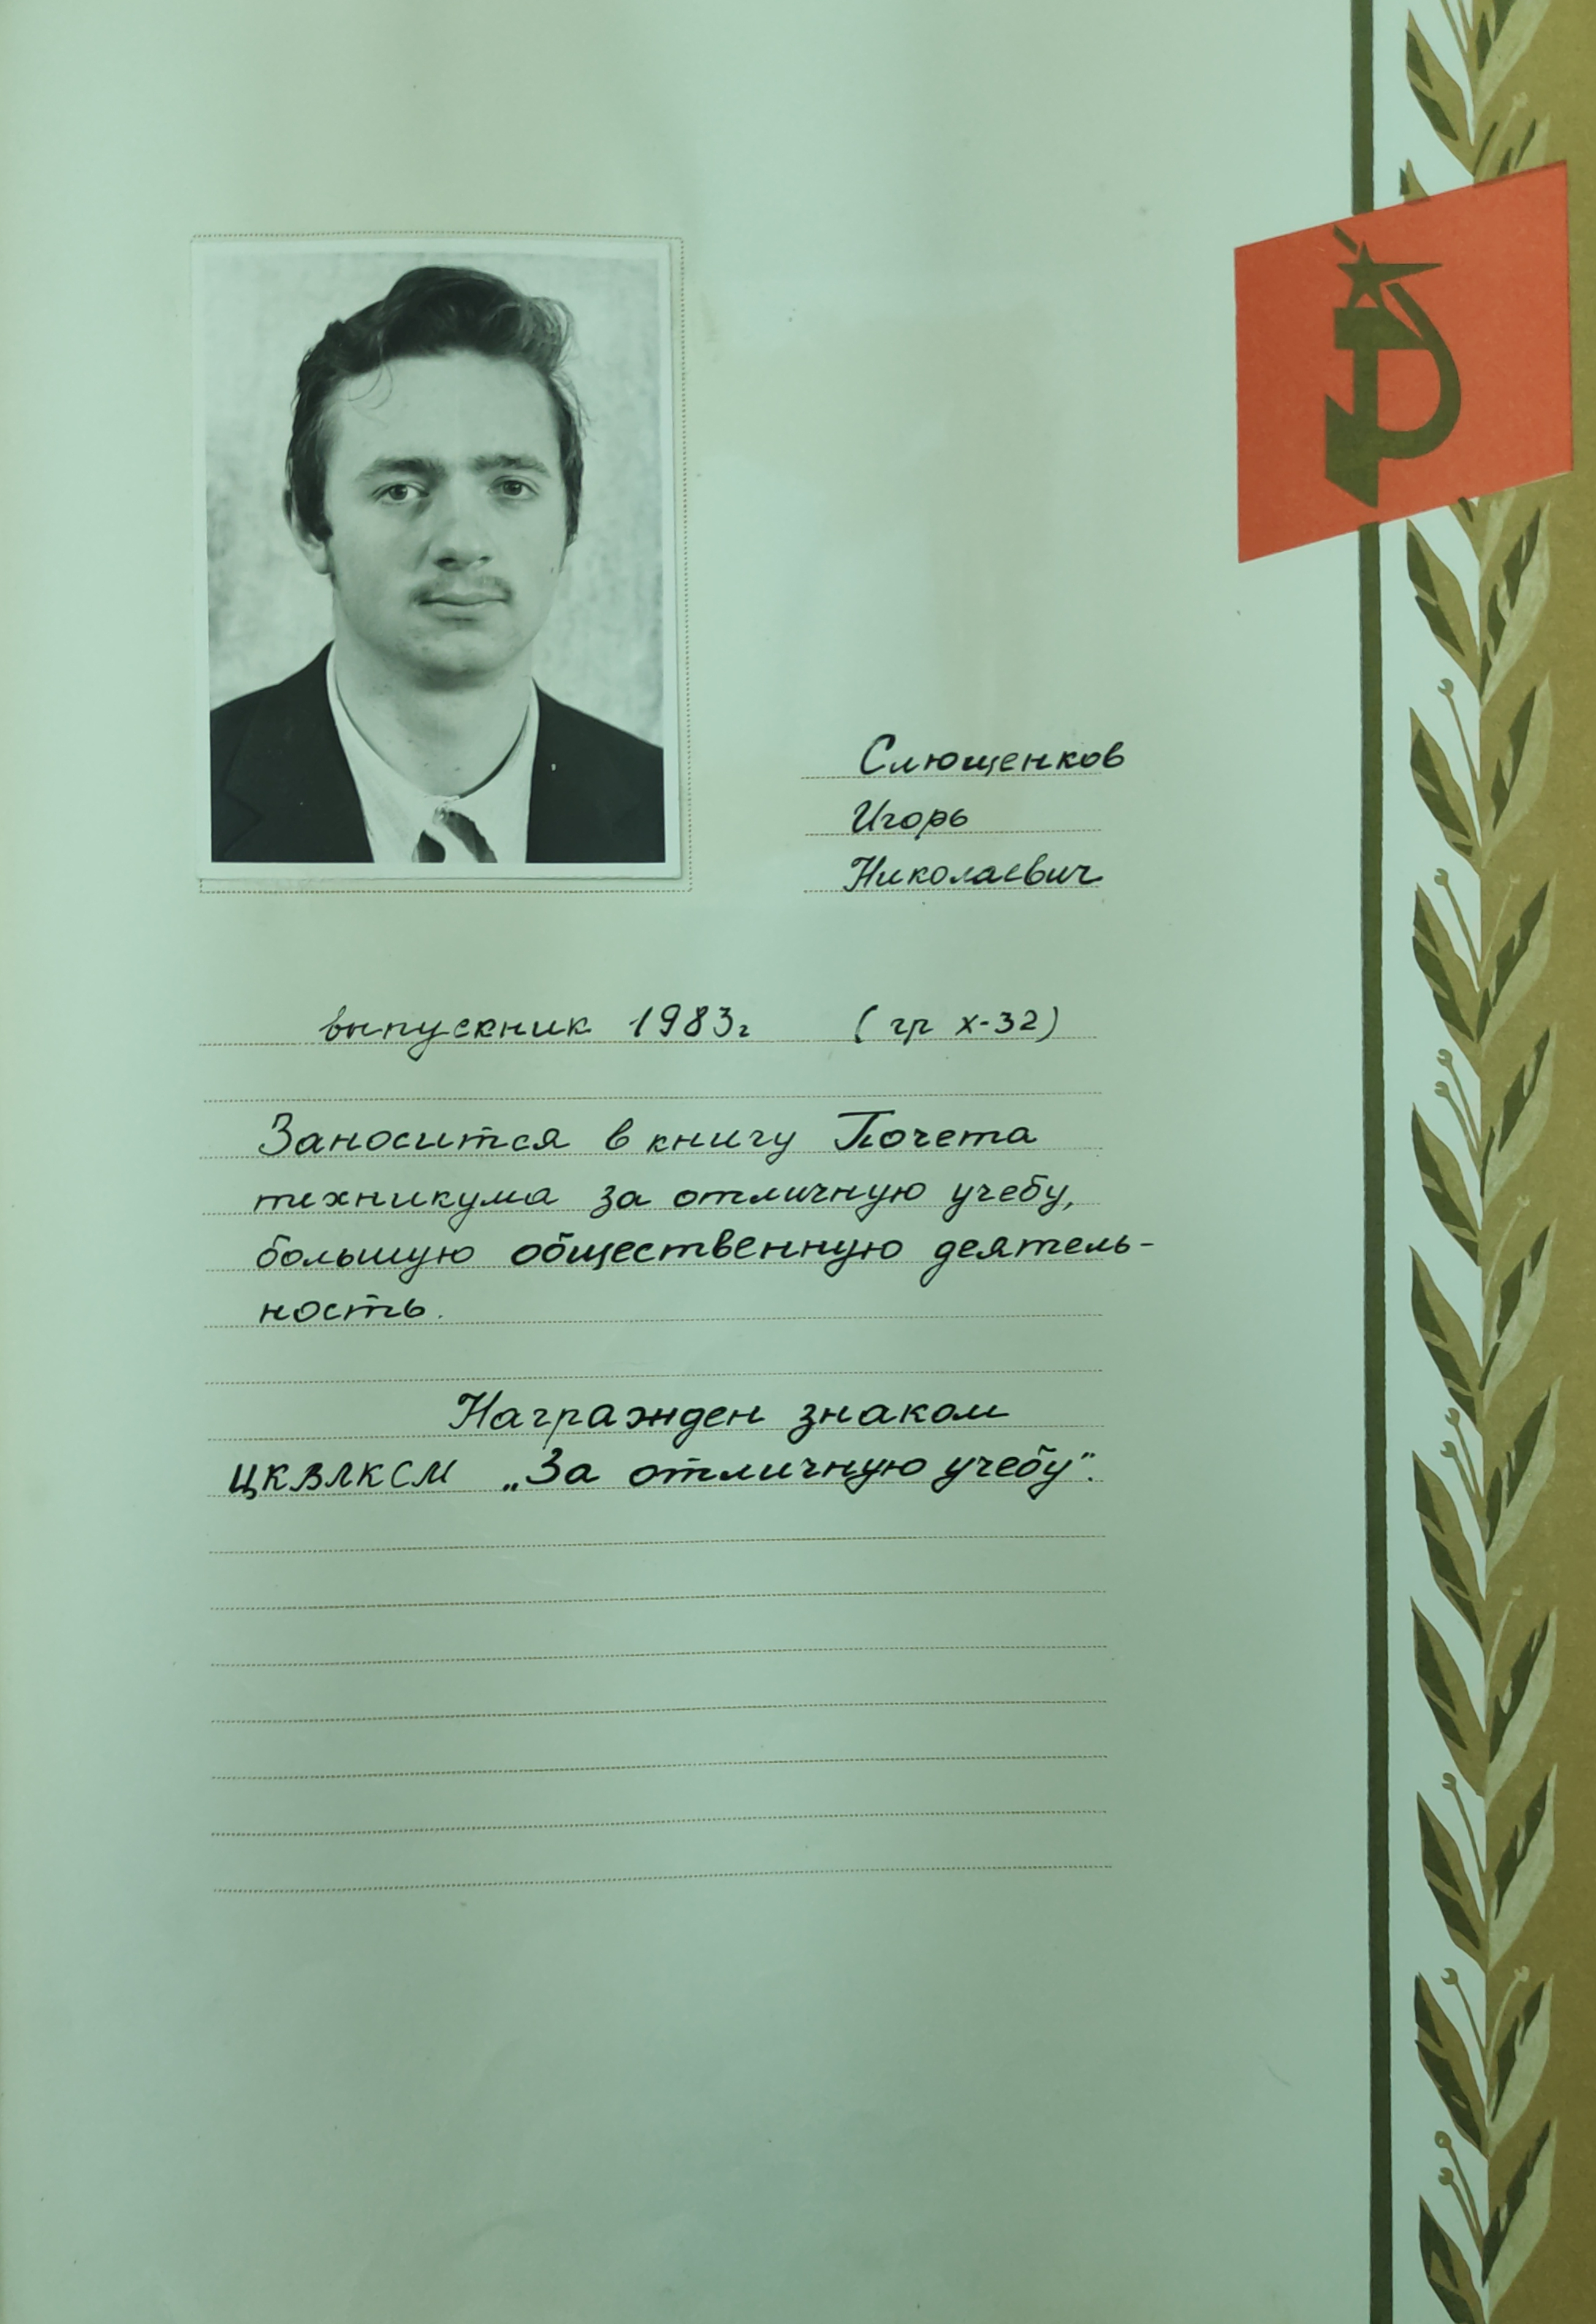 Слющенков
Игорь
Николаевич
выпускник 1983г (гр х-32)
Заносится в книгу Почета
техникума за отличную учебу,
большую общественную деятель-
ность.
Награжден знаком
ЦКВЛКСМ „За отличную учебу".